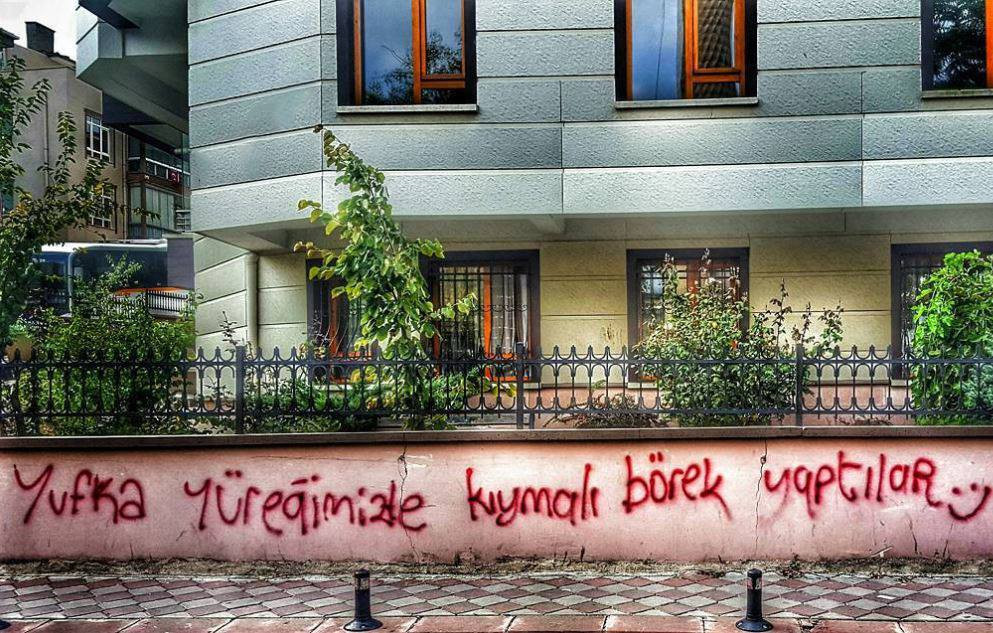 Yufka yüreğimizle kıymalı börek yaptılar :)